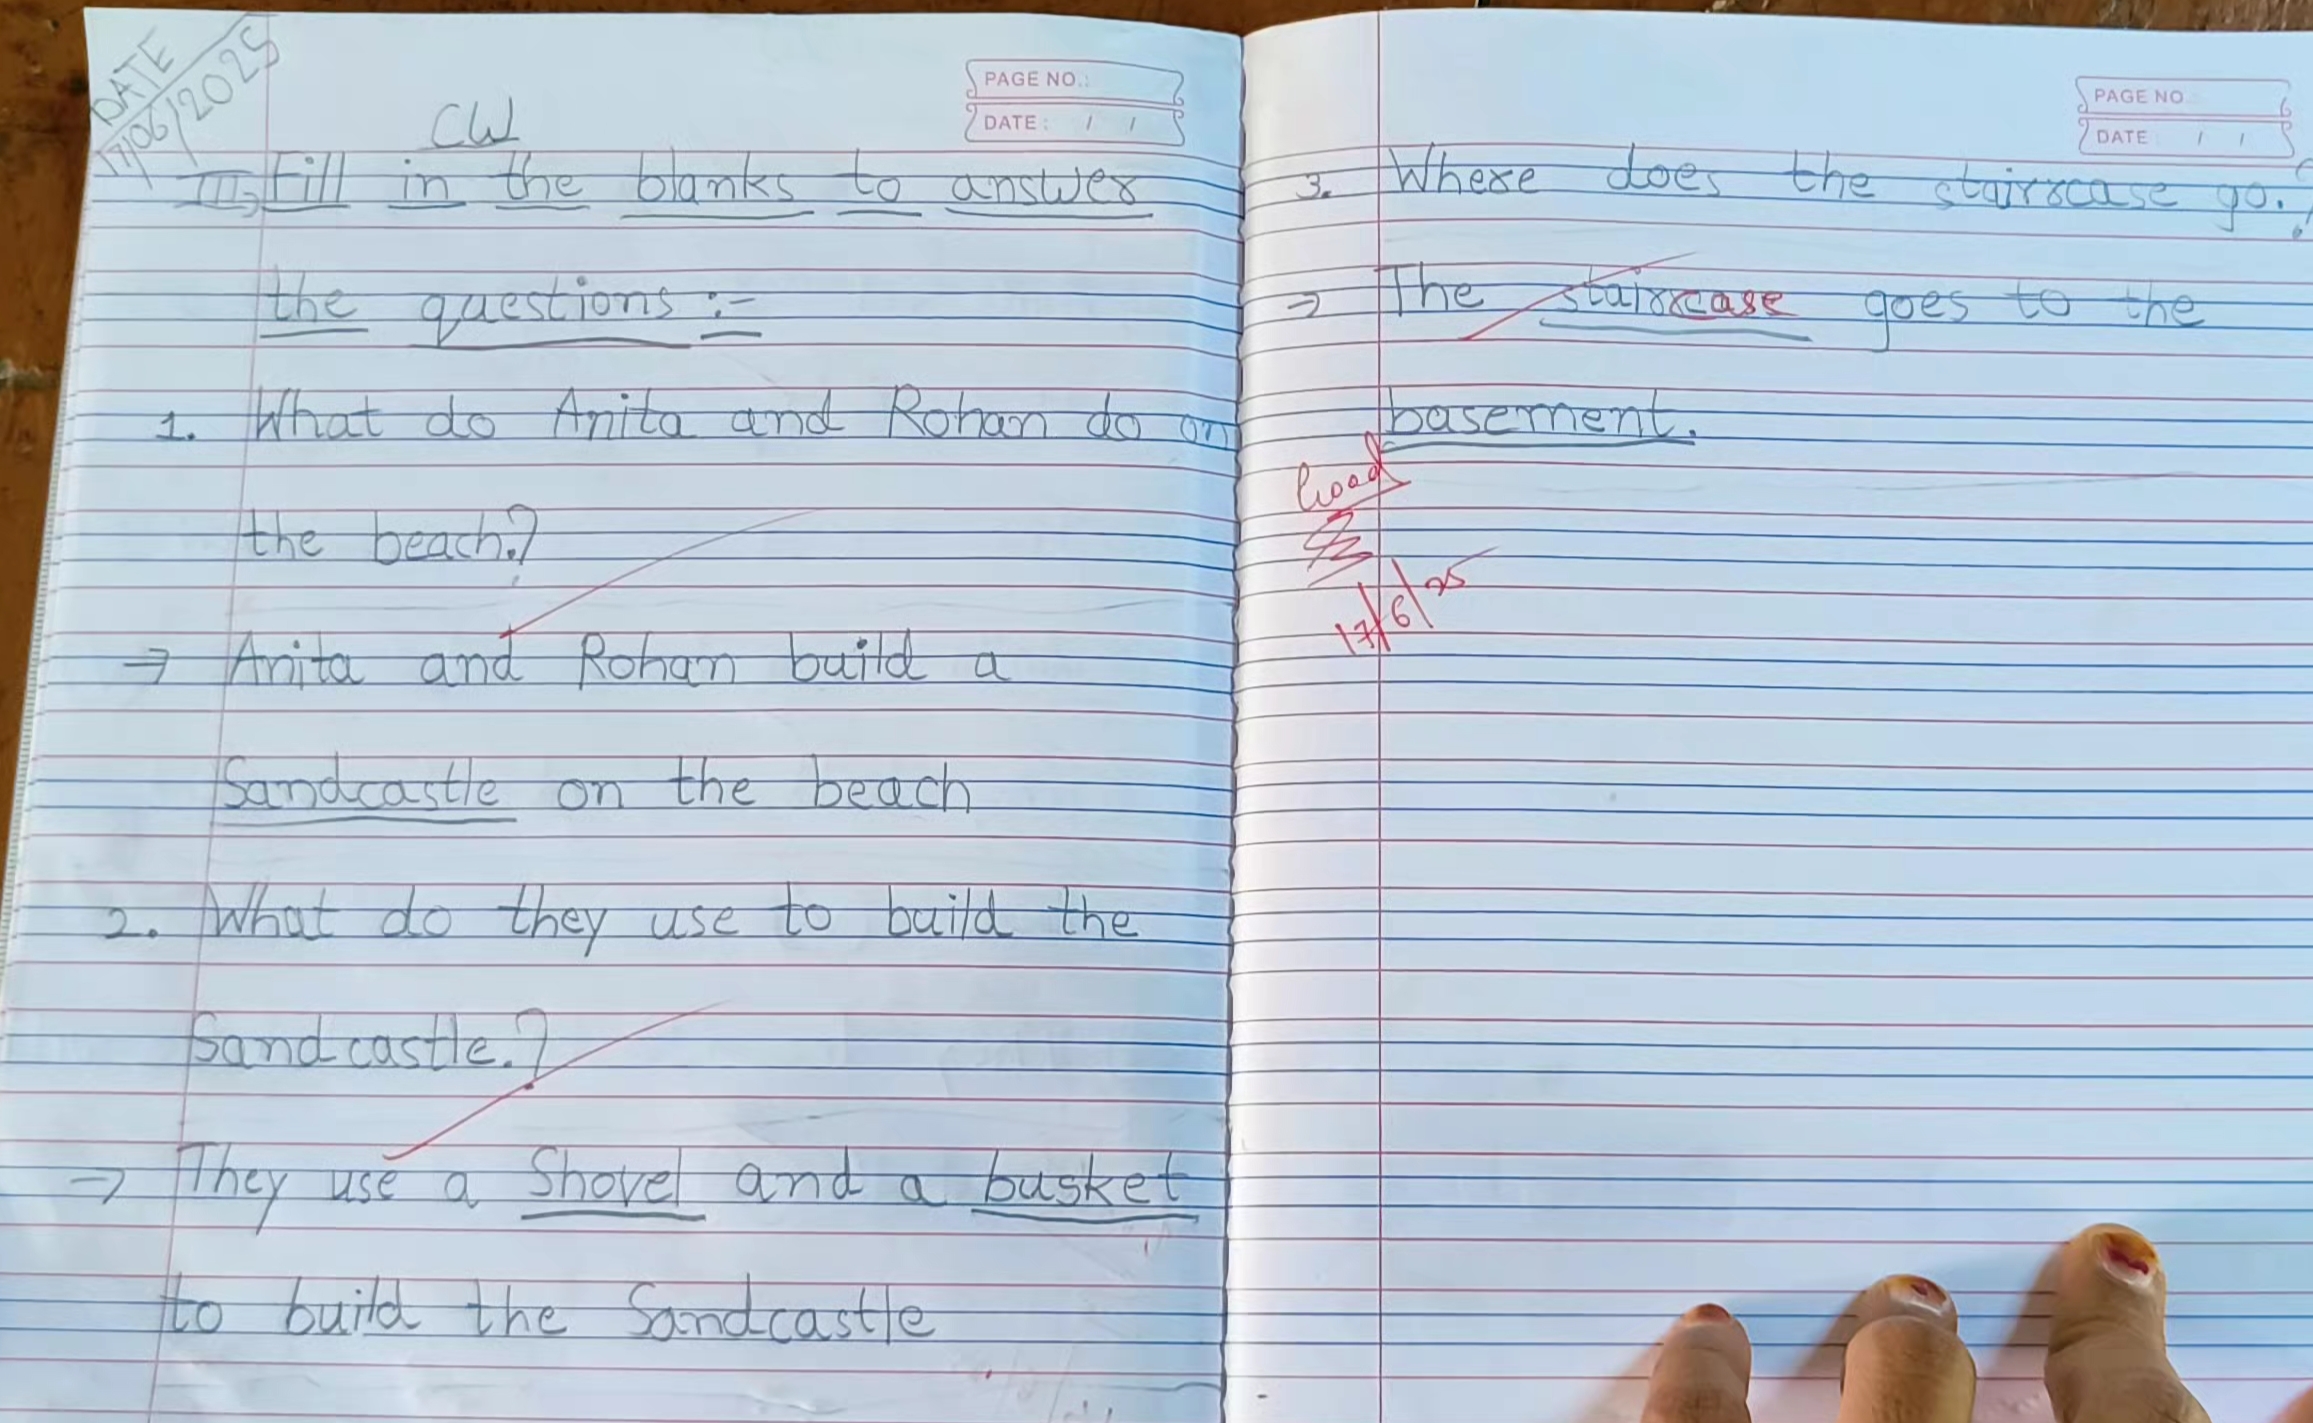 DATE
17/06/2025
PAGE NO.:
DATE: / /
CW
III, Fill in the blanks to answer
the questions :-
1. What do Anita and Rohan do on
the beach.?
→ Anita and Rohan build a
Sandcastle on the beach
2. What do they use to build the
Sandcastle.?
→ They use a Shovel and a busket
to build the Sandcastle
PAGE NO.
DATE / /
3. Where does the stairrcase go.?
→ The stairrcase goes to the
basement.
Good
17/6/25